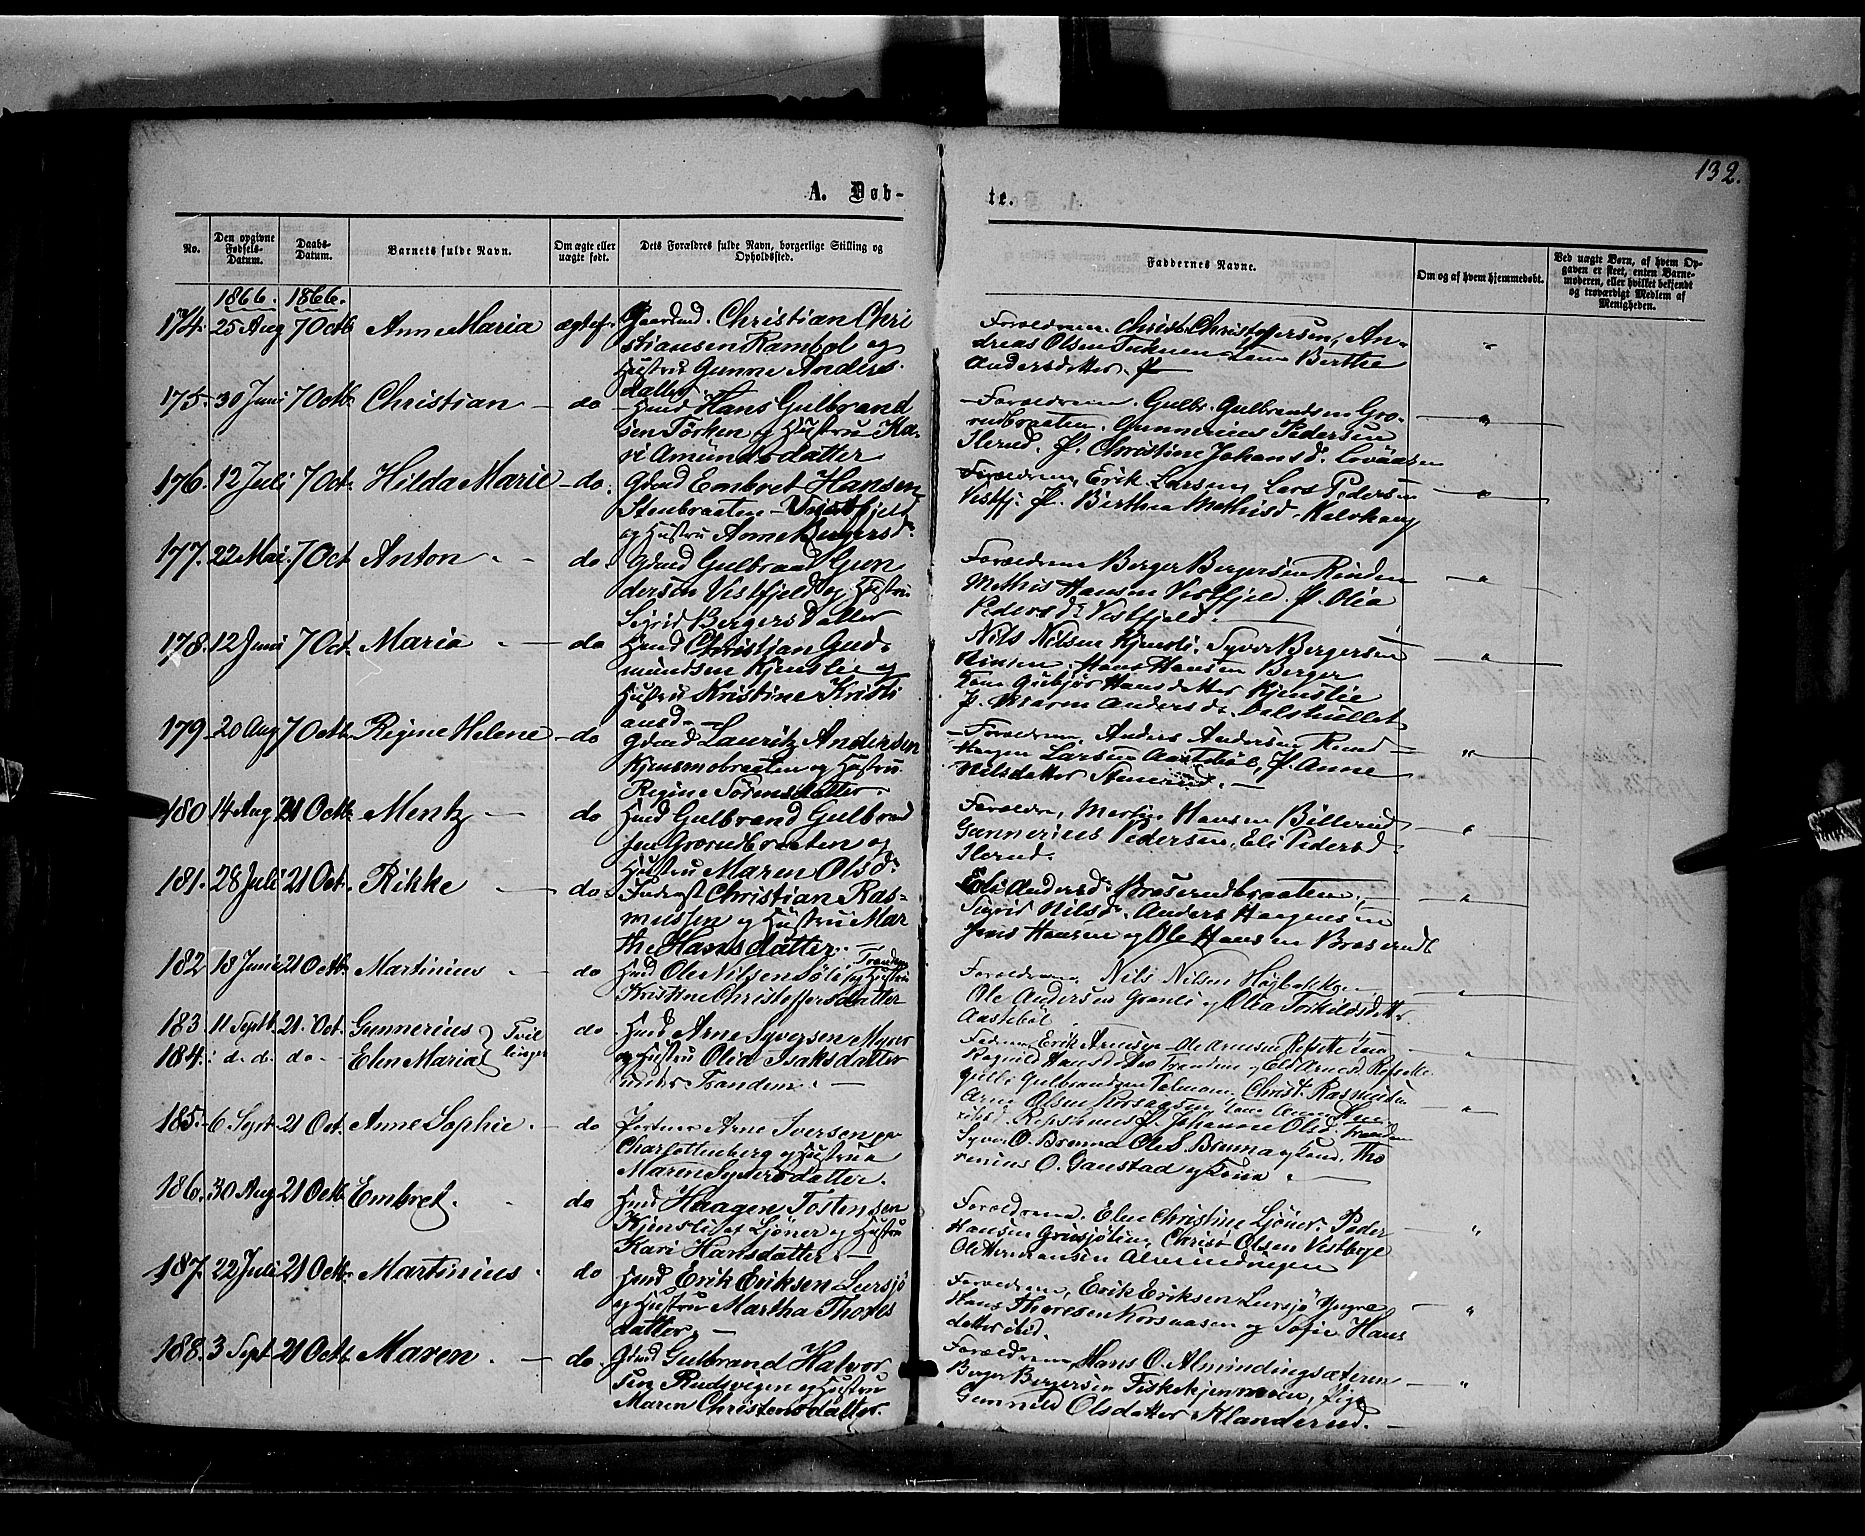 132.
A. Døb-
te.
No.
Den opgivne Fødsels-Datum.
Daabs-Datum.
Barnets fulde Navn.
Om ægte eller uægte født.
Dets Forældres fulde Navn, borgerlige Stilling og Opholdssted.
Faddernes Navne.
Om og af hvem hjemmedøbt.
Ved uægte Børn, af hvem Opgaven er skeet, enten Barnemoderen, eller hvilket bekjendt og troværdigt Medlem af Menigheden.
1866. 1866.
174. 25 Aug 7 Octb Anne Maria ægtef. Gaardmd. Christian Chri
stiansen Rambøl og
Hustru Gunne Anders.
datter.
Forældrene. Christ. Christoffersen, An-
dreas Olsen
Andersdatter. P
175. 30 Juni 7 Octb Christian - do Hmd Hans Gulbrand
sen Törken og Hustru Ka-
ri Amundsdatter
Forældrene. Gulbr. Gulbrandsen Gro-
rudbraaten. Gunnerius Pedersen
Ilerud. P. Christine Johansd.
176. 12 Juli 7 Oct. Hilda Marie - do. Gdmd Embret Hansen
Stenbraaten - Vestfjeld
og Hustru Anne Bergersd.
Forældrene, Erik Larsen, Lars Pedersen
Vestfj. P. Berthea Mathisd.
177. 22 Mai. 7 Oct Anton - do. Gdmd Gulbrand Gun
dersen Vestfjeld og Hustru
Sigrid Bergers Datter
Forældrene Berger Bergersen Rinden
Mathis Hansen Vestfjeld. P. Olia
Pedersd. Vestfjeld.
178. 12 Juni 7 Oct. Maria - do Hmd Christian Gud-
mundsen Kjenslie og
Hustru Kristine Kristi
ansd.
Nils Nilsen Kjensli. Syver Bergersen
Rinden. Hans Hansen Berger
Kone Gubjør Hansdatter Kjenslie
P. Maren Andersd.
179. 20 Aug 7 Octb. Regine Helene - do Gdmd Lauritz Andersen
Kjensmobraaten og Hustru
Regine Sörensdatter.
Forældrene, Anders Andersen Rund
Haagen Larsen Aastebøl, P. Anne
Nilsdatter Stenerud.
180 14 Aug 21 Octb. Mentz - do Hmd Gulbrand Gulbrand
sen Grorudbraaten og
Hustru Maren Olsd.
Forældre, Martin Hansen Billerud
Gunnerius Pedersen, Eli Pedersd.
Ilerud.
181. 28 Juli 21 Oct. Rikke - do Inderst Christian Ras-
mussen og Hustru Mar
the Hansdatter.
Eli Andersd. Braserudbraaten,
Sigrid Nilsd. Anders Haagensen
Jens Hansen og Ole Hansen Braserud
182 18 Juni 21 Octb. Martinius - do Hmd Ole Nilsen Söli og Hustru
Kristine Christoffersdatter
Forældrene, Nils Nilsen Høgbakken
Ole Andersen Granli og Olia Torkildsdatter
Aastebøl
183. 11 Septb. 21. Oct. Gunnerius } Tvil do Hmd Arne Syversen Myrer
184. d. d. do - Elen Maria } linger og Hustru Olia Isaksdatter
under Tranden. -
185. 6 Sept 21 Oct. Anne Sophie. - do Portner Arne Iversen paa
Charlottenberg og Hustru
Maren Syversdatter.
Syver O. Brenna Ole S. Brenna og Kone, Tho
renius O. Gaustad og Kone
186. 30 Aug 21 Octb. Embret. - do Hmd Haagen Tostensen
Kjensli af Ljöner og Hustru
Kari Hansdatter. -
Forældrene, Elene Christine Ljöner. Peder
Hansen Grinsjöhien, Christ. Olsen Vestbye
Ole Hermansen Almindingen
187. 22 Juli 21 Octb. Martinius - do Hmd Erik Eriksen Lursjö
og Hustru Martha Thores
datter. -
Forældrene, Erik Eriksen Lursjö Yngre
Hans Thoresen Korsaasen og Sofie Hans
datter ibid.
188. 3 Sept 21 Octb. Maren. - do. Gdmd Gulbrand Halvor
sen Rudsvigen og Hustru
Maren Christensdatter.
Forældrene, Hans O. Almindingsæteren
Berger Bergersen Fiskekjenmoen, Pige
Gunnild Olsdatter Klanderud. -